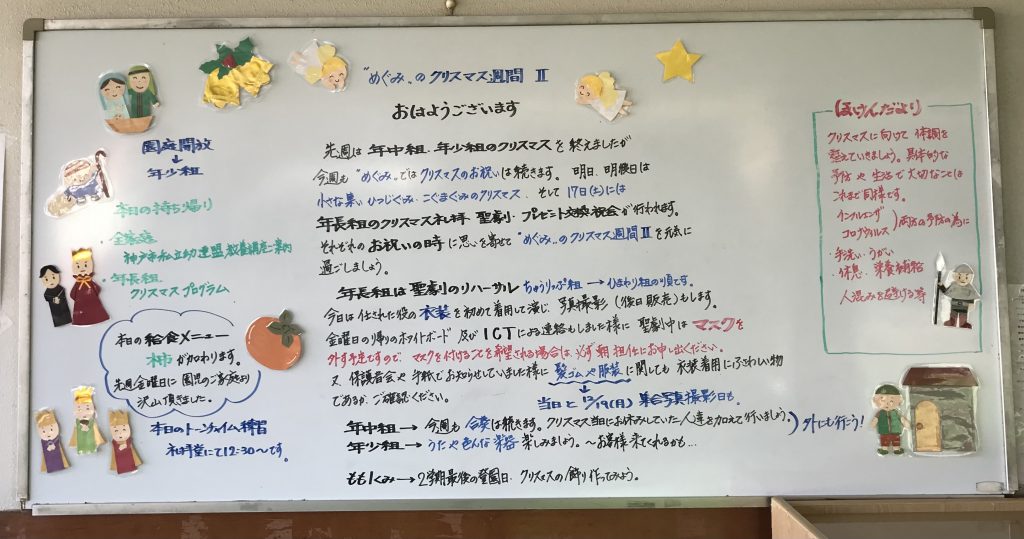 "めぐみ"のクリスマス週間 Ⅱ
おはようございます
園庭開放
↓
年少組
本日の持ち帰り
・全家庭
神戸市私立幼連盟教養講座ご案内
・年長組
クリスマスプログラム
本日の給食メニュー
柿が加わります。
先週金曜日に園児のご家庭より
沢山頂きました。
本日のトーンチャイム練習
礼拝堂にて12:30〜です。
先週は年中組、年少組のクリスマスを終えましたが
今週も"めぐみ"ではクリスマスのお祝いは続きます。明日、明後日は
小さな集い ひつじぐみ・こぐまぐみのクリスマス、そして17日(土)には
年長組のクリスマス礼拝・聖劇・プレゼント交換祝会が行われます。
それぞれのお祝いの時に思いを寄せて"めぐみ"のクリスマス週間Ⅱを元気に
過ごしましょう。
年長は聖劇のリハーサル ちゅうりっぷ組→ひまわり組の順です。
今日は任された役の衣装を初めて着用して演じ、写真撮影(後日販売)もします。
金曜日の帰りのホワイトボード及びICTによる連絡もしました様に聖劇中はマスクを
外す予定ですので、マスクを付けることを希望される場合は、必ず朝担任にお申し出ください。
又、保護者会や手紙でお知らせしていました様に髪ゴムや服装に関しても衣装着用にふさわしい物
であるか、ご確認ください。
当日と12/19(月)集合写真撮影日も。
年中組→今週も合奏は続きます。クリスマス当日にお休みしていた人達を加えて行いましょう。
年少組→うたや色んな楽器楽しみましょう。〜お客様来てくれるかも…
外にも行こう!
ももぐみ→2学期最後の登園日、クリスマスの飾り作ってみよう。
ほけんだより
クリスマスに向けて体調を
整えていきましょう。具体的な
予防や生活で大切なことは
これまで同様です。
インフルエンザ
コロナウィルス
両方の予防の為に
・手洗い・うがい
・休息・栄養補給
人混みを避ける等